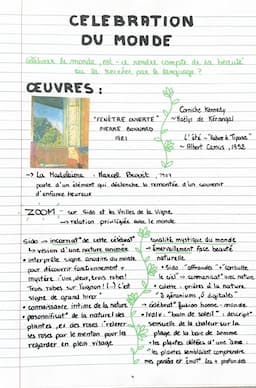 CELEBRATION
DU MONDE
célébrer le monde, est-ce rendre compte de sa beauté
ou la recréer par le langage ?
ŒUVRES :
"FENÊTRE OUVERTE"
PIERRE BONNARD
1921
Corniche Kennedy
~ Maylis de Kérangal
L'été - "Noces à Tipasa"
~ Albert Camus, 1952
-> La Madeleine : Marcel Proust,
parle d'un élément qui déclenche la remontée d'un souvenir
d'enfance heureux
ZOOM - sur Sido et les Vrilles de la Vigne
-> relation privilégiée avec le monde
Sido -> incarnat° de cette célébrat°
↳ vision d'une nature animée
• interprète signe envoyés du monde
pour découvrir fonctionnement +
mystère "Une, deux, trois robes !
Trois robes sur l'oignon ! (...) C'est
signe de grand hiver "
• connaissance intime de la nature
• personnificat° de la nature (des
plantes, ex des roses : "relever
les roses par le menton pour les
regarder en plein visage
dualité mystique du monde
-> émerveillement face beauté
naturelle
• Sido : "offrande" + "consulte
le ciel" -> communicat° avec nature
• colette : prières à la nature
célébrat° fusion homme - monde
"bain de soleil" : descript°
sensuelle de la chaleur sur la
plage de la baie de Somme
• les plantes dotées d'une âme
"les plantes semblaient comprendre